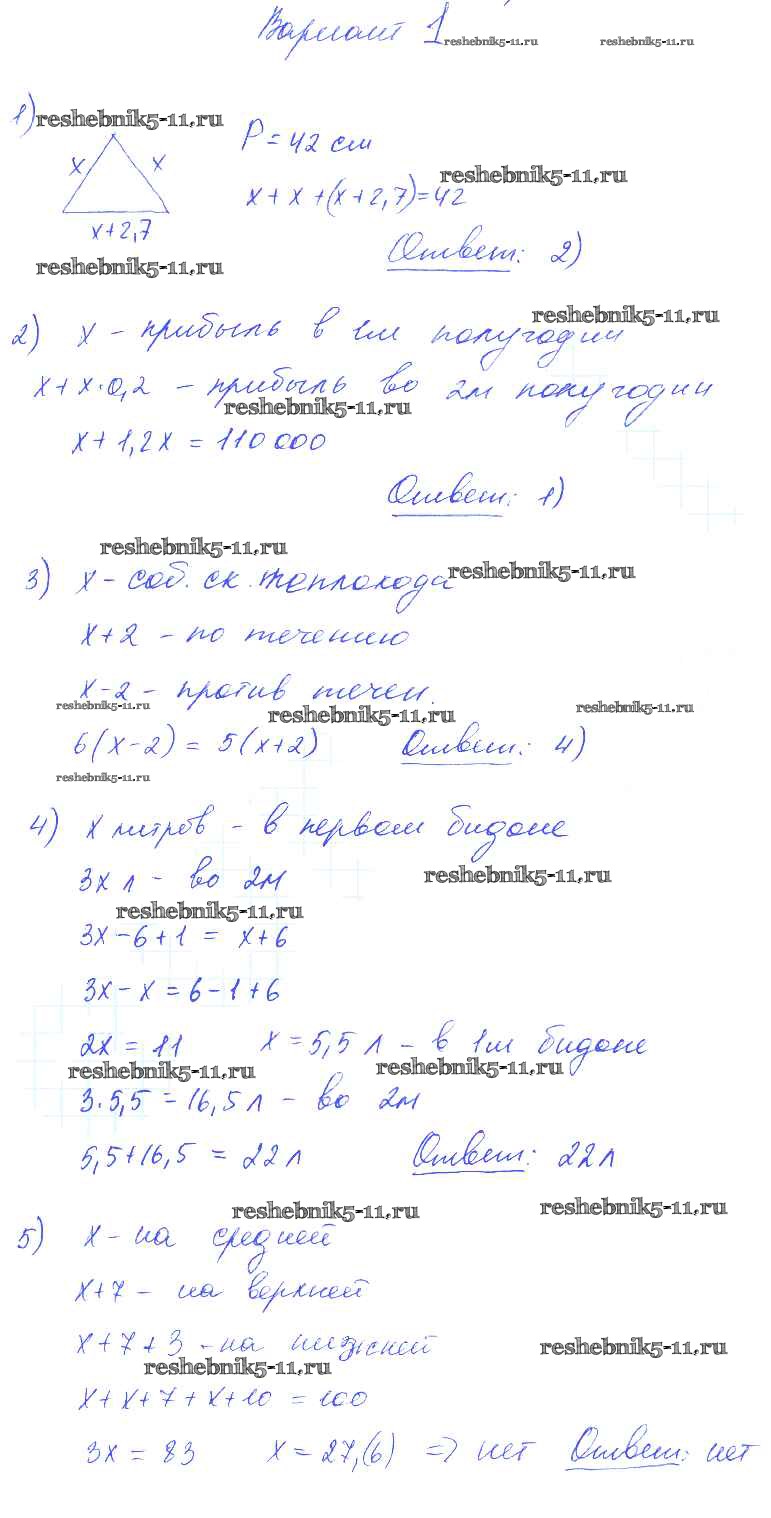 Вариант 1
reshebnik5-11.ru reshebnik5-11.ru
1) reshebnik5-11.ru
P = 42 см
x x
reshebnik5-11.ru
x + x + (x + 2,7) = 42
x+2,7
Ответ: 2)
reshebnik5-11.ru
reshebnik5-11.ru
2) x - прибыль в 1м полугодии
x + x·0,2 - прибыль во 2м полугодии
reshebnik5-11.ru
x + 1,2x = 110 000
Ответ: 1)
reshebnik5-11.ru
3) x - соб. ск. теплохода
reshebnik5-11.ru
x+2 - по течению
x-2 - против течен.
reshebnik5-11.ru reshebnik5-11.ru reshebnik5-11.ru
6(x-2) = 5(x+2) Ответ: 4)
reshebnik5-11.ru
4) x литров - в первом бидоне
3x л - во 2м
reshebnik5-11.ru
reshebnik5-11.ru
3x - 6 + 1 = x + 6
3x - x = 6 - 1 + 6
2x = 11 x = 5,5 л - в 1м бидоне
reshebnik5-11.ru reshebnik5-11.ru
3·5,5 = 16,5 л - во 2м
5,5 + 16,5 = 22 л Ответ: 22 л
reshebnik5-11.ru reshebnik5-11.ru
5) x - на средней
x+7 - на верхней
x+7+3 - на нижней
reshebnik5-11.ru
reshebnik5-11.ru
x + x + 7 + x + 10 = 100
3x = 83 x = 27,(6) => нет Ответ: нет